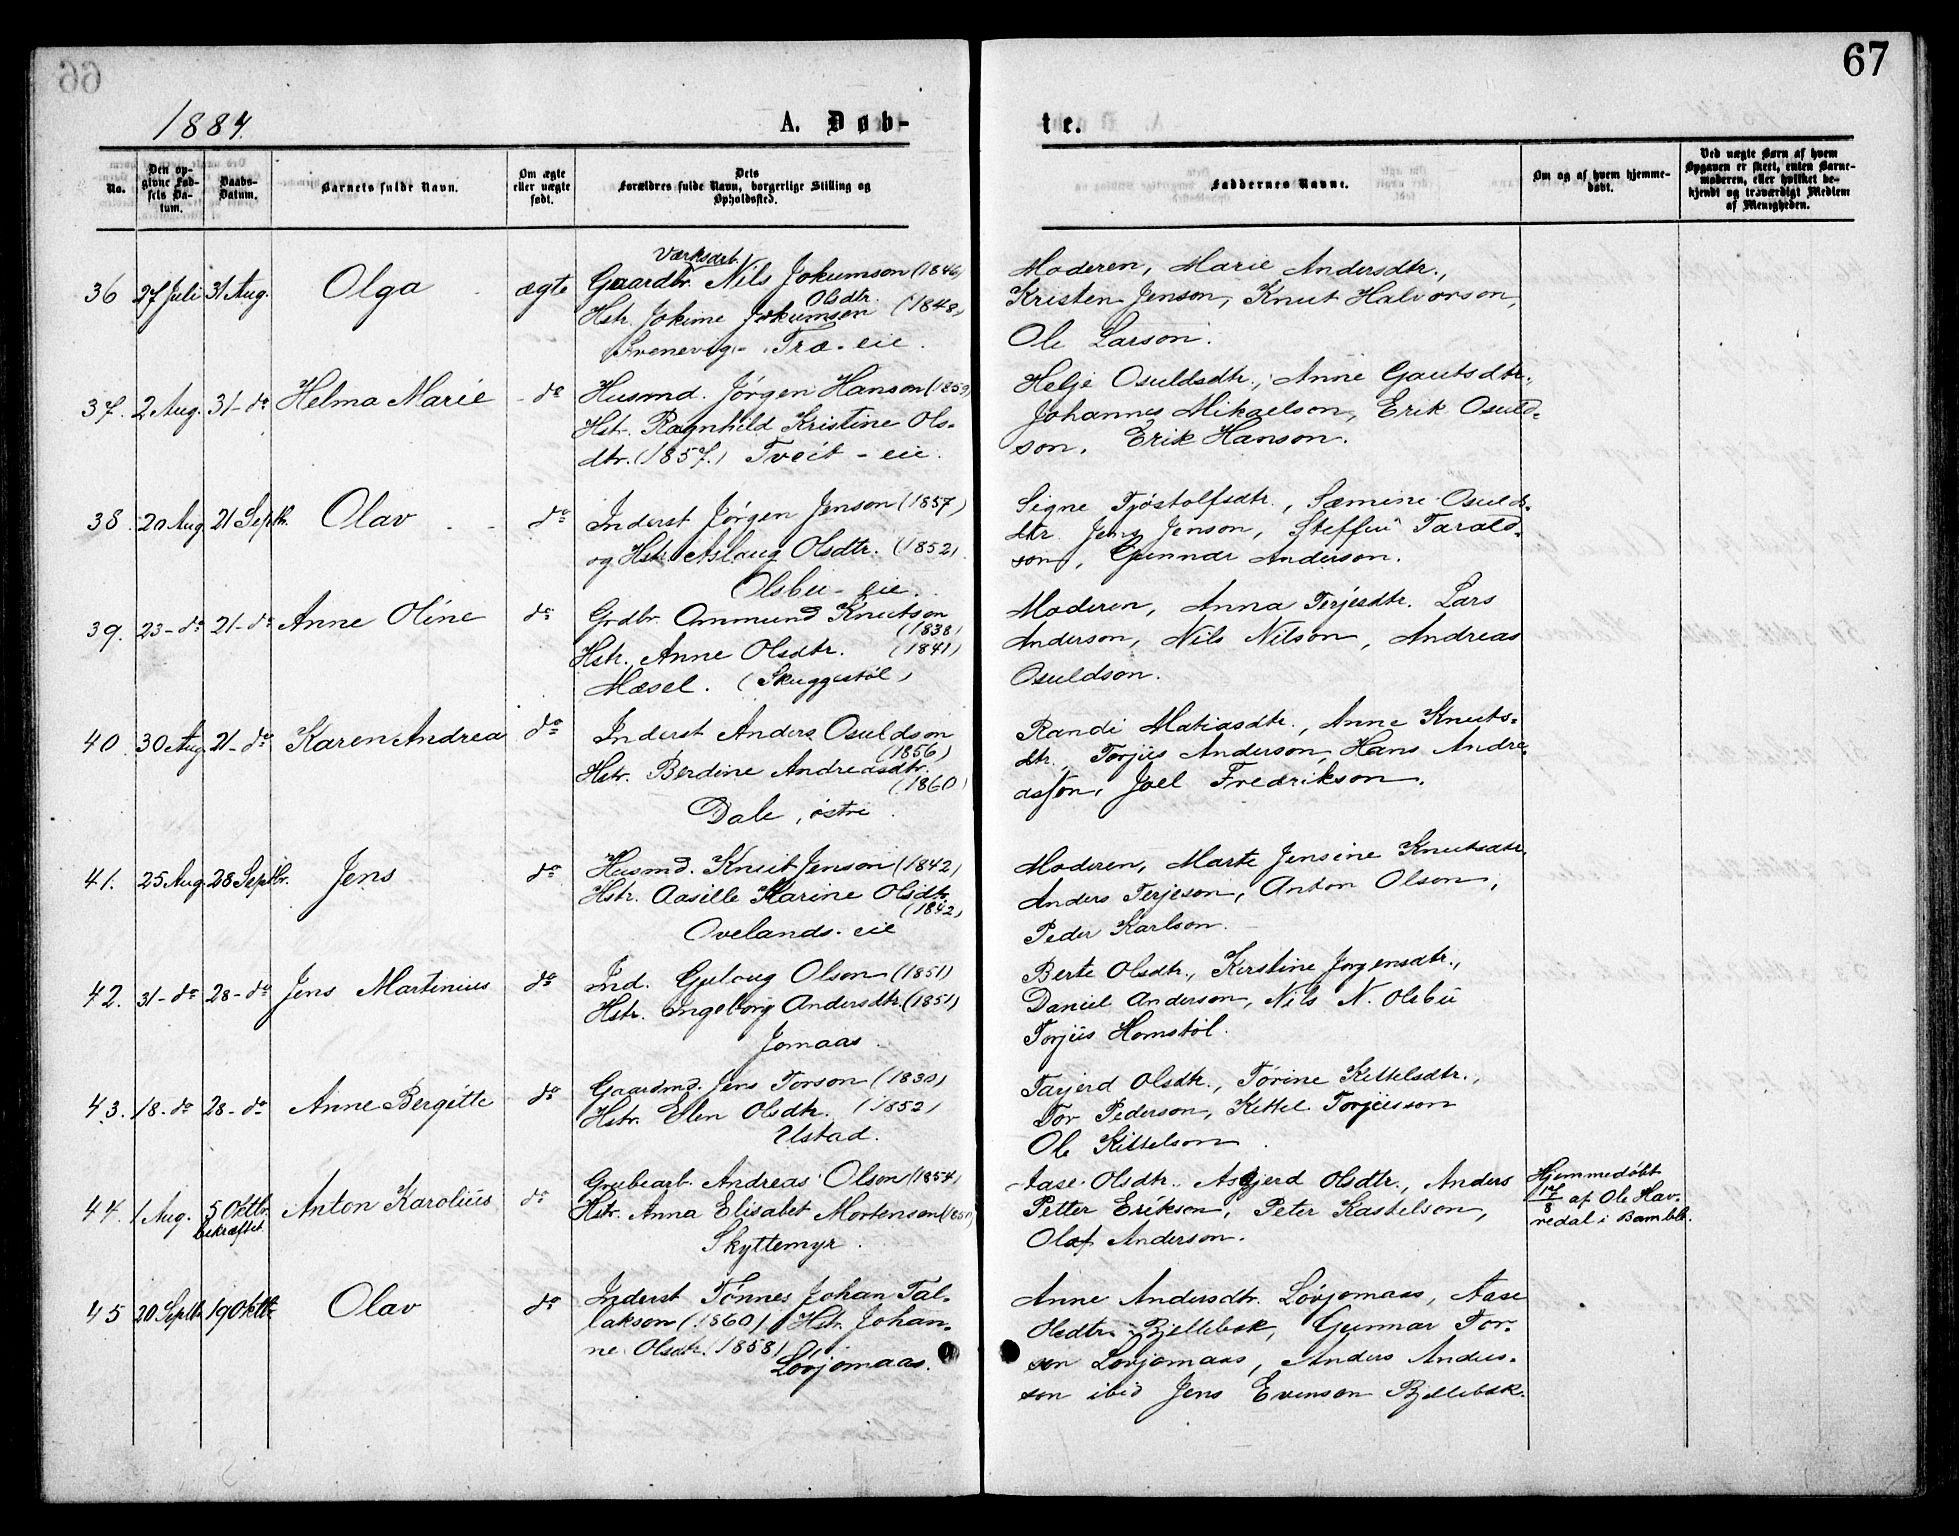 66
67
1884.
A. Døb-
te.
No.
Den op-
givne Fød-
sels Da-
tum.
Daabs-
Datum.
Barnets fulde Navn.
Om ægte
eller uægte
født.
Dets
Forældres fulde Navn, borgerlige Stilling og
Opholdssted.
Faddernes Navne.
Om og af hvem hjemme-
døbt.
Ved uægte Børn af hvem
Opgaven er skeet, enten Barne-
moderen, eller hvilket be-
kjendt og troværdigt Medlem
af Menigheden.
36 27 Juli 31 Aug. Olga ægte
Værksarb.
Gaardbr. Nils Jokumson (1846)
Olsdtr.
Hstr. Jokime Jokumsen (1848)
Svenevig - Træ - eie.
Moderen, Marie Andersdtr.,
Kristen Jenson, Knut Halvorson,
Ole Larson.
37. 2 Aug. 31 - do Helma Marie - do
Husmd. Jørgen Hanson (1859)
Hstr. Ragnhild Kristine Ols-
dtr. (1857.) Tveit - eie.
Helje Osuldsdtr., Anne Gautsdtr.,
Johannes Mikaelson, Erik Osuld-
son, Erik Hanson.
38. 20 Aug. 21 Septbr. Olav do
Inderst Jørgen Jenson (1857)
og Hstr. Aslaug Olsdtr. (1852)
Olsbu - eie.
Signe Tjøstolfsdtr., Sæmine Osulds-
dtr. Jens Jenson, Steffen Tarald-
son, Gunnar Anderson.
39. 23 - do 21 - do Anne Oline do
Grdbr. Ommund Knutson
(1838)
Hstr. Anne Olsdtr. (1841)
Mæsel. (Skuggestøl)
Moderen, Anna Terjesdtr. Lars
Anderson, Nils Nilson, Andreas
Osuldson.
40. 30 Aug. 21 - do Karen Andrea do
Inderst Anders Osuldson
(1856)
Hstr. Berdine Andreasdtr.
(1860)
Dale, østre.
Randi Matiasdtr., Anne Knuts-
dtr. Torjus Anderson, Hans Andre-
asson, Joel Fredrikson.
41. 25 Aug. 28 Septbr. Jens do
Husmd. Knut Jenson (1842)
Hstr. Aasille Karine Olsdtr.
(1842)
Ovelands - eie
Moderen, Marte Jensine Knutsdtr.
Anders Terjeson, Anton Olson,
Peder Karlson.
42. 31 - do 28 - do Jens Martinius do
Ind. Guloug Olson (1851)
Hstr. Ingeborg Andersdtr. (1851)
Jomaas.
Berte Olsdtr., Kirstine Jørgensdtr.,
Daniel Anderson, Nils N. Olsbu
Torjus Homstøl.
43. 18 - do 28 - do Anne Bergitte do
Gaardmd. Jens Torson (1830)
Hstr. Elen Olsdtr. (1852)
Ustad.
Tarjerd Olsdtr., Torine Kittelsdtr.,
Tor Pederson, Kittel Torjusson
Ole Kittelson.
44. 1 Aug. 5 Oktbr. Anton Karolius do
bekræftet
Grubearb. Andreas Olson (1854)
Hstr. Anna Elisabet Mortenson
Skyttemyr.
Aase Olsdtr., Asgjerd Olsdtr., Anders
Petter Erikson, Peter Kastelson,
Olaf Anderson.
Hjemmedøbt
17/8 af Ole Hav-
redal i Bamble.
45 20 Septbr. 19 Oktbr. Olav do
Inderst Tønnes Johan Tal-
lakson (1860) Hstr. Johan-
ne Olsdtr. (1858)
Løvjomaas.
Anne Andersdtr. Løvjomaas, Aase
Olsdtr. Bjellebæk, Gunnar Tor-
son Løvjomaas, Anders Anders-
son ibid Jens Evenson Bjellebæk.